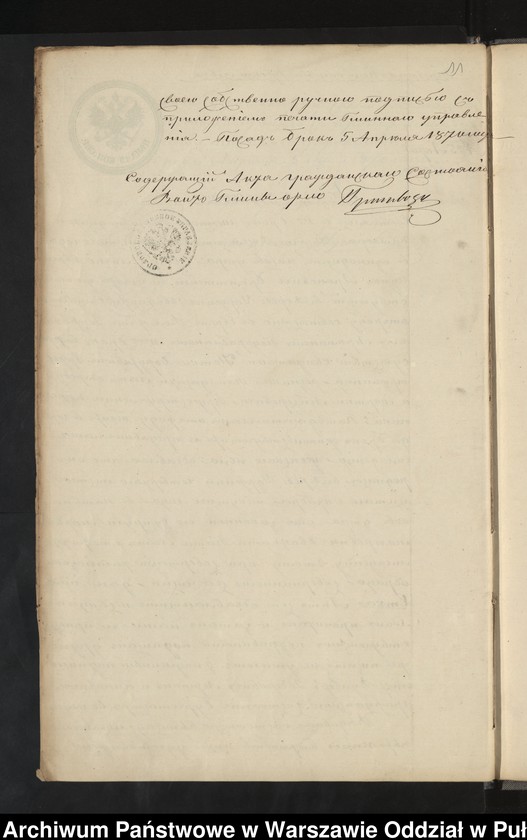 11
своею собственно ручною подписью съ
приложеніемъ печати Гминнаго управле
нія. — Посадъ Брокъ 5 Апрѣля 1870 года —
Содержащій Акта гражданскаго Состоянія
Войтъ Гмины Орло
Archiwum Państwowe w Warszawie Oddział w Puł